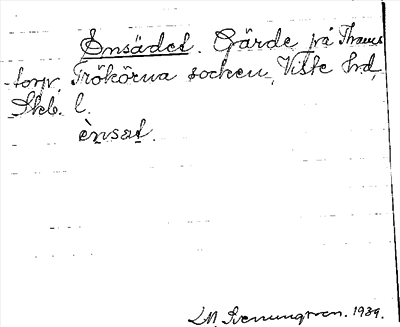 Ensädet. Gärde på Thams
torp. Trökörna socken, Viste hrd,
Skb. l.
ènsat.
L.M. Svenungsson. 1939.